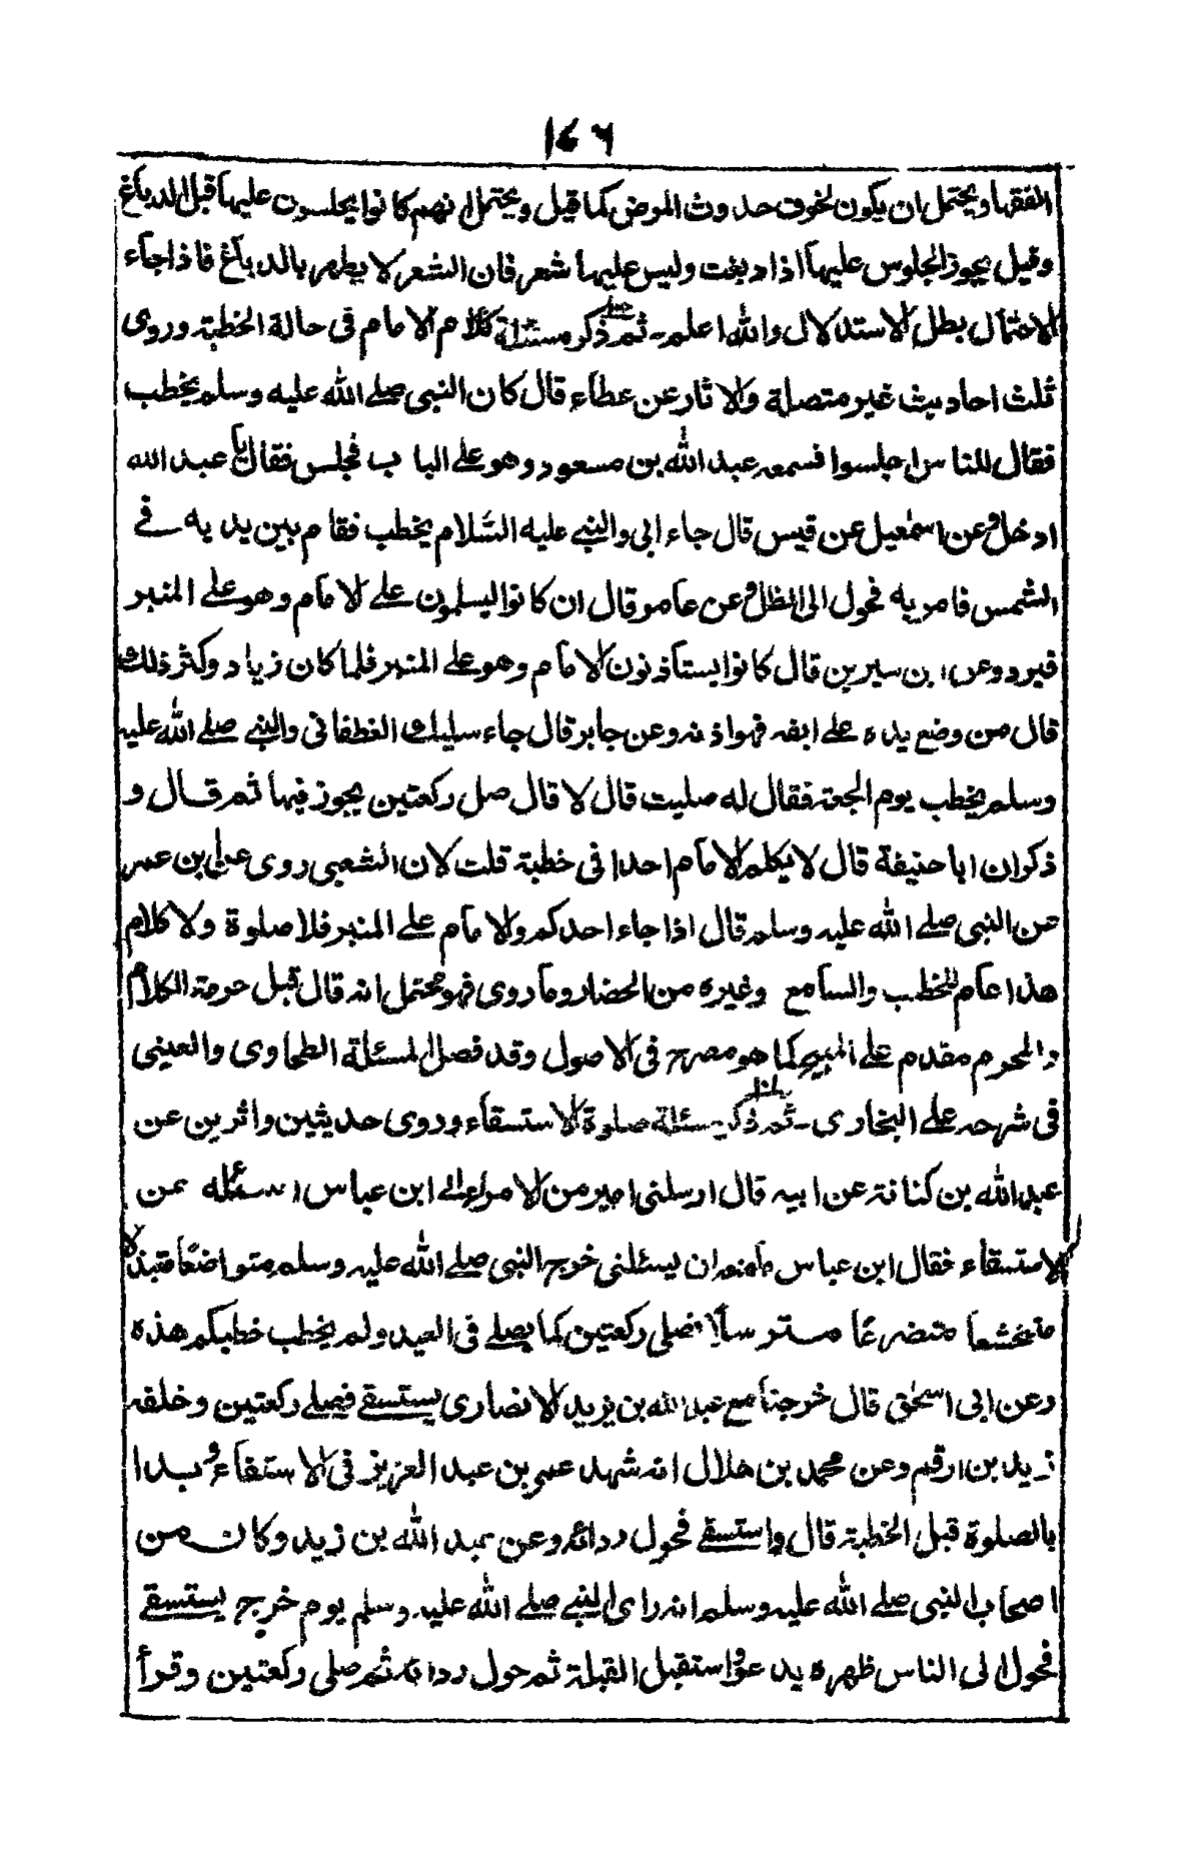 ١٧٦
الفقها ويحتمل ان يكون لخوف حدوث المرض كما قيل ويحتمل انهم كانوا يجلسون عليها قبل الدباغ
وقيل يجوز الجلوس عليها اذا دبغت وليس عليها شعر فان الشعر لا يطهر بالدباغ فاذا جآء
الاحتمال بطل الاستدلال والله اعلم ـ ثم ذكر مسئلة كلام الامام فى حالة الخطبة وروى
ثلث احاديث غير متصلة والاثار عن عطآء قال كان النبى صلے الله عليه وسلم يخطب
فقال للناس اجلسوا فسمعه عبد الله بن مسعود وهو علے الباب فجلس فقال يا عبد الله
ادخل وعن اسمٰعيل عن قيس قال جاء ابى والنبے عليه السّلام يخطب فقام بين يديه فے
الشمس فامر به فحول الى الظل وعن عامر قال ان كانوا ليسلمون علے الامام وهو علے المنبر
فيرد وعن ابن سيرين قال كانوا يستأذنون الامام وهو علے المنبر فلما كان زياد وكثر ذلك
قال من وضع يده علے انفه فهو اذنه وعن جابر قال جاء سليك الغطفانى والنبے صلے الله عليه
وسلم يخطب يوم الجمعة فقال له صليت قال لا قال صل ركعتين يجوز فيها ثم قال و
ذكر ان ابا حنيفة قال لا يكلم الامام احدا فى خطبة قلت لان الشعبى روى عن ابن عمر
عن النبى صلے الله عليه وسلم قال اذا جاء احدكم والامام علے المنبر فلا صلوة ولا كلام
هذا عام للخطب والسامع وغيره من الحضار وما روى فهو محتمل انه قال قبل حرمة الكلام
والمحرم مقدم علے المبيح كما هو مصرح فى الاصول وقد فصل المسئلة الطحاوى والعينى
فى شرحه علے البخارى ـ ثم ذكر مسئلة صلوة الاستسقآء وروى حديثين واثرين عن
عبد الله بن كنانة عن ابيه قال ارسلنى امير من الامراء الے ابن عباس اسئله عن
الاستسقآء فقال ابن عباس ما منعه ان يسئلنى خرج النبى صلے الله عليه وسلم متواضعًا متبذلا
متخشعا متضرعًا مسترسلًا فصلى ركعتين كما يصلے فى العيد ولم يخطب خطبكم هذه
وعن ابى اسحٰق قال خرجنا مع عبد الله بن يزيد الانصارى يستسقے فصلے ركعتين وخلفه
زيد بن ارقم وعن محمد بن هلال انه شهد عمر بن عبد العزيز فى الاستقآء وبدا
بالصلوة قبل الخطبة قال واستسقے فحول ردائه وعن عبد الله بن زيد وكان من
اصحاب النبى صلے الله عليه وسلم انه راى النبے صلے الله عليه وسلم يوم خرج يستسقے
فحول الى الناس ظهره يدعو واستقبل القبلة ثم حول ردائه ثم صلى ركعتين وقرأ